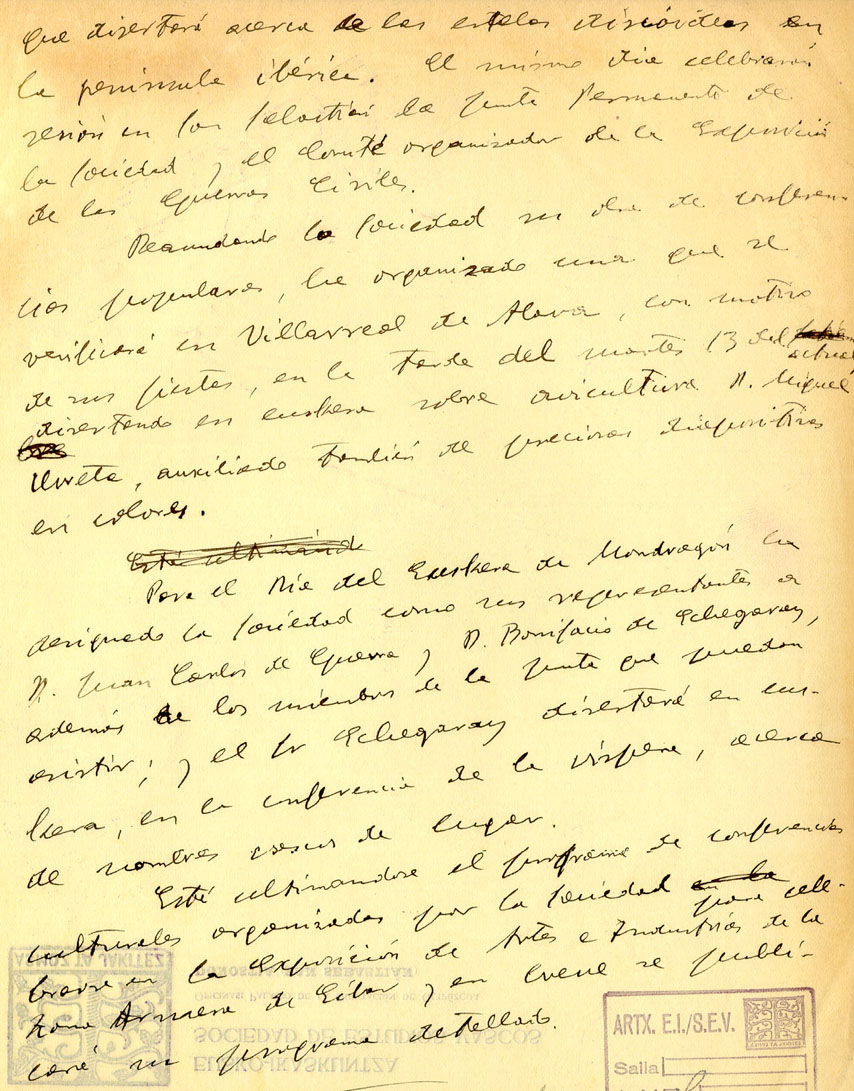 que disertará acerca de las estelas discóideas en
la península ibérica. El mismo día celebrarán
sesión en San Sebastián la Junta Permanente de
la Sociedad y el Comité organizador de la Exposición
de las Guerras Civiles.
Reanudando la Sociedad su obra de conferen-
cias populares, ha organizado una que se
verificará en Villarreal de Alava, con motivo
de sus fiestas, en la tarde del martes 13 del
actual
disertando en euskera sobre avicultura D. Miguel
Urreta, auxiliado también de preciosas diapositivas
en colores.
Está ultimánd
Para el Día del Euskera de Mondragón ha
designado la Sociedad como sus representantes a
D. Juan Carlos de Guerra y D. Bonifacio de Echegaray,
además de los miembros de la Junta que puedan
asistir; y el Sr Echegaray disertará en eus-
kera, en la conferencia de la víspera, acerca
de nombres vascos de lugar.
Está ultimandose el programa de conferencias
culturales organizadas por la Sociedad en la
para cele-
brarse en la Exposición de Artes e Industrias de la
zona Armera de Eibar y en breve se publi-
cará su programa detallado.
ASMOZ TA JAKITEZ
DONOSTIA - SAN SEBASTIAN
SOCIEDAD DE ESTUDIOS VASCOS
EUSKO IKASKUNTZA
ARTX. E.I./S.E.V.
Saila